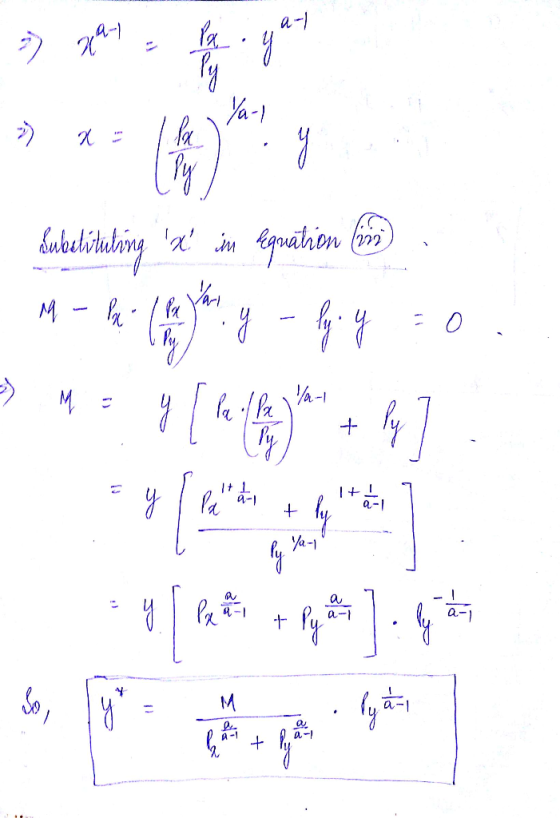 ⇒ x^{a-1} = Px/Py · y^{a-1}
⇒ x = (Px/Py)^{1/a-1} · y
Substituting 'x' in Equation (iii).
M - Px · (Px/Py)^{1/a-1} · y - Py · y = 0.
⇒ M = y [ Px · (Px/Py)^{1/a-1} + Py ].
= y [ (Px^{1+\frac{1}{a-1}} + Py^{1+\frac{1}{a-1}}) / Py^{1/a-1} ]
= y [ Px^{\frac{a}{a-1}} + Py^{\frac{a}{a-1}} ] · Py^{-\frac{1}{a-1}}
So, y* = M / (Px^{\frac{a}{a-1}} + Py^{\frac{a}{a-1}}) · Py^{\frac{1}{a-1}}